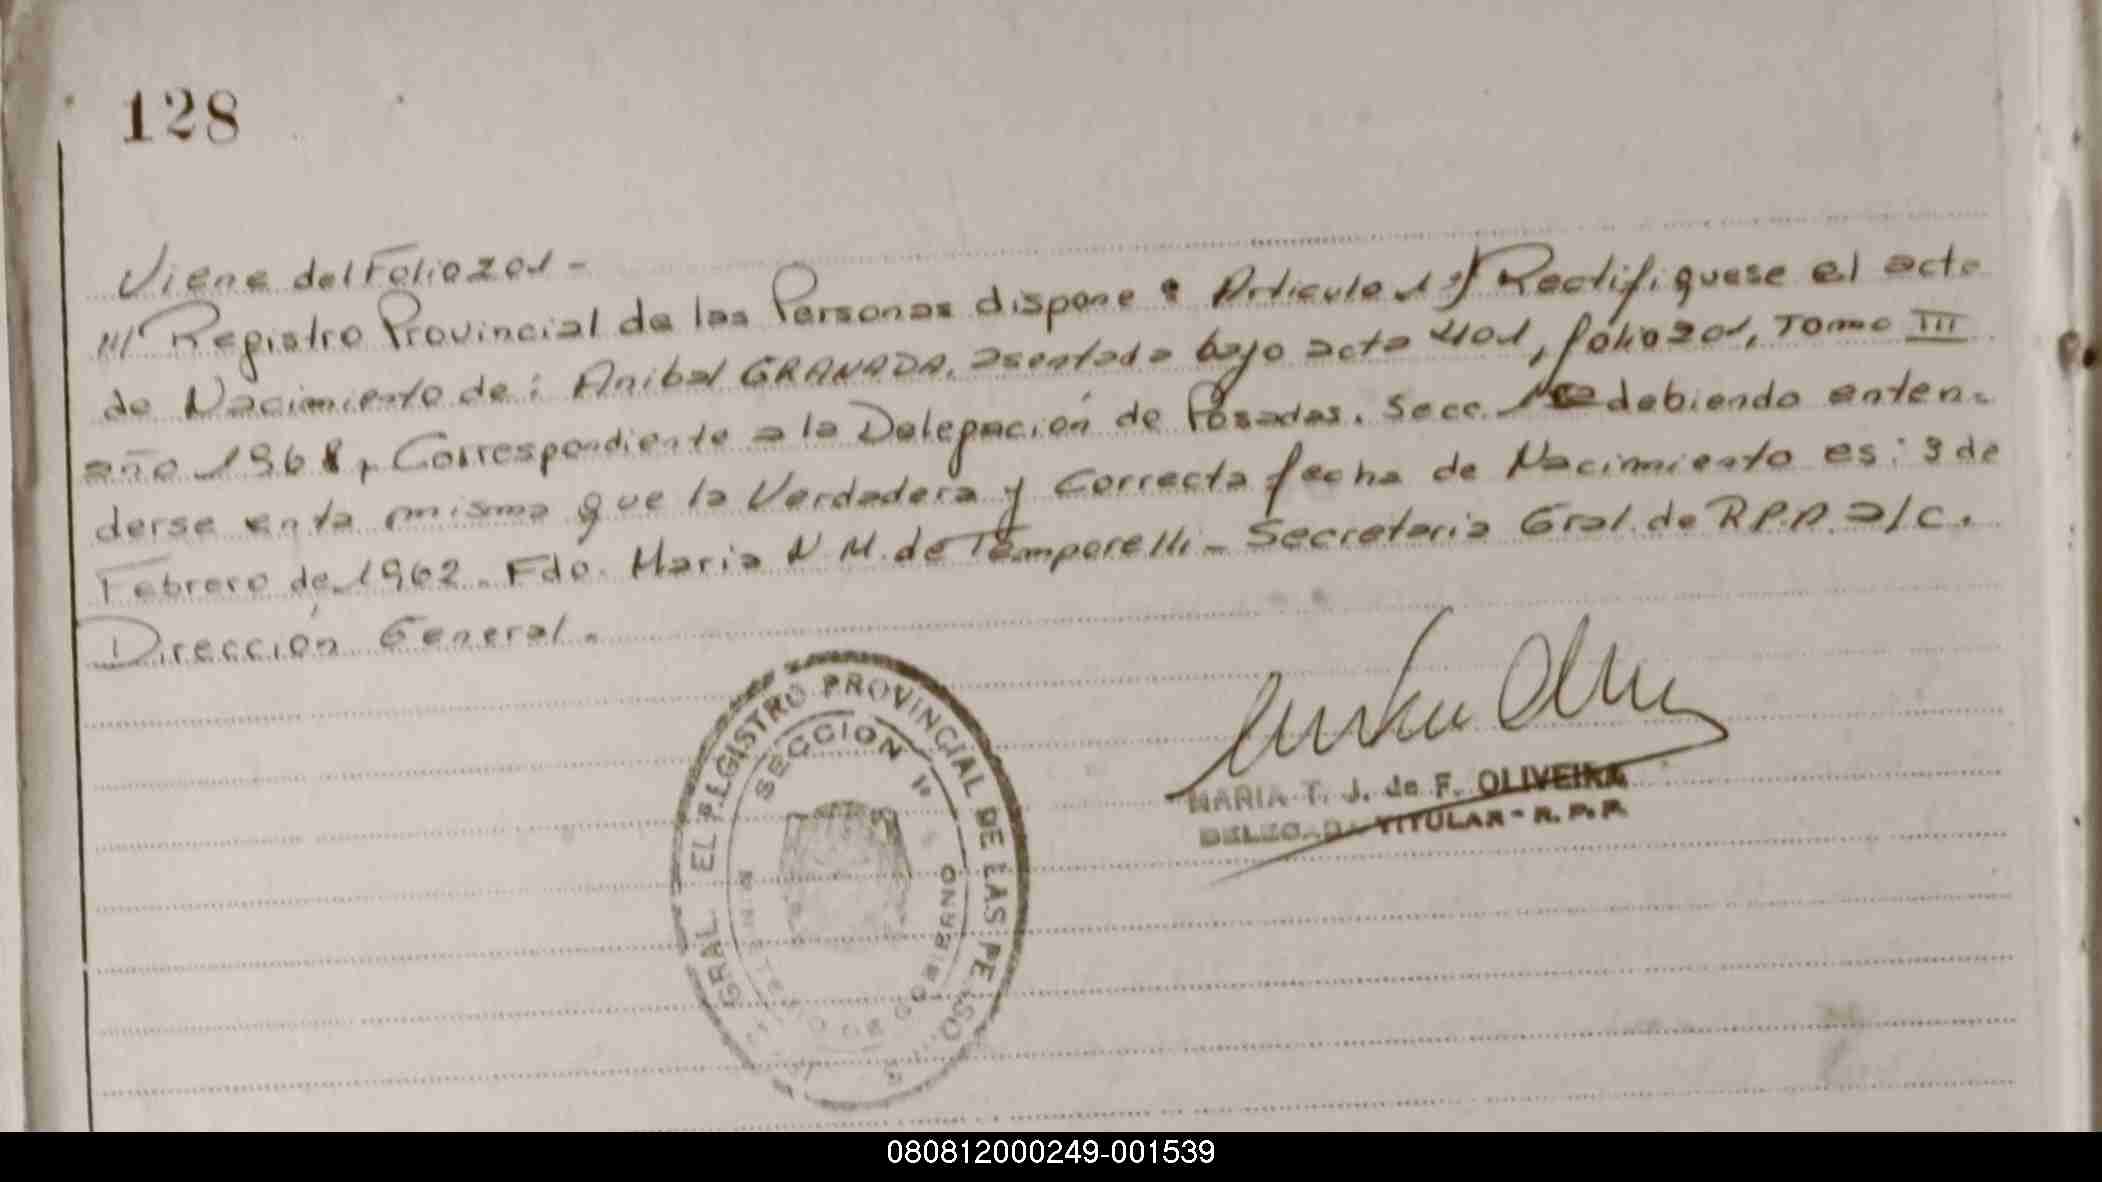 128
Viene del Folio 201 -
/// Registro Provincial de las Personas dispone : Articulo 1º) Rectifiquese el acta
de Nacimiento de : Anibal GRANADA, asentada bajo acta 401, folio 201, Tomo III
año 1968, Correspondiente a la Delegación de Posadas. Secc. 1ra debiendo enten-
derse en la misma que la Verdadera y Correcta fecha de Nacimiento es: 9 de
Febrero de 1962. Fdo. Maria N M. de Temporelli - Secretaria Gral. de R.P.P. a/c.
Dirección General.
GRAL. EL REGISTRO PROVINCIAL DE LAS PE
SECCION 1º
GOBIERNO
MARIA T. J. de F. OLIVEIRA
DELEGADA TITULAR - R. P. P.
080812000249-001539